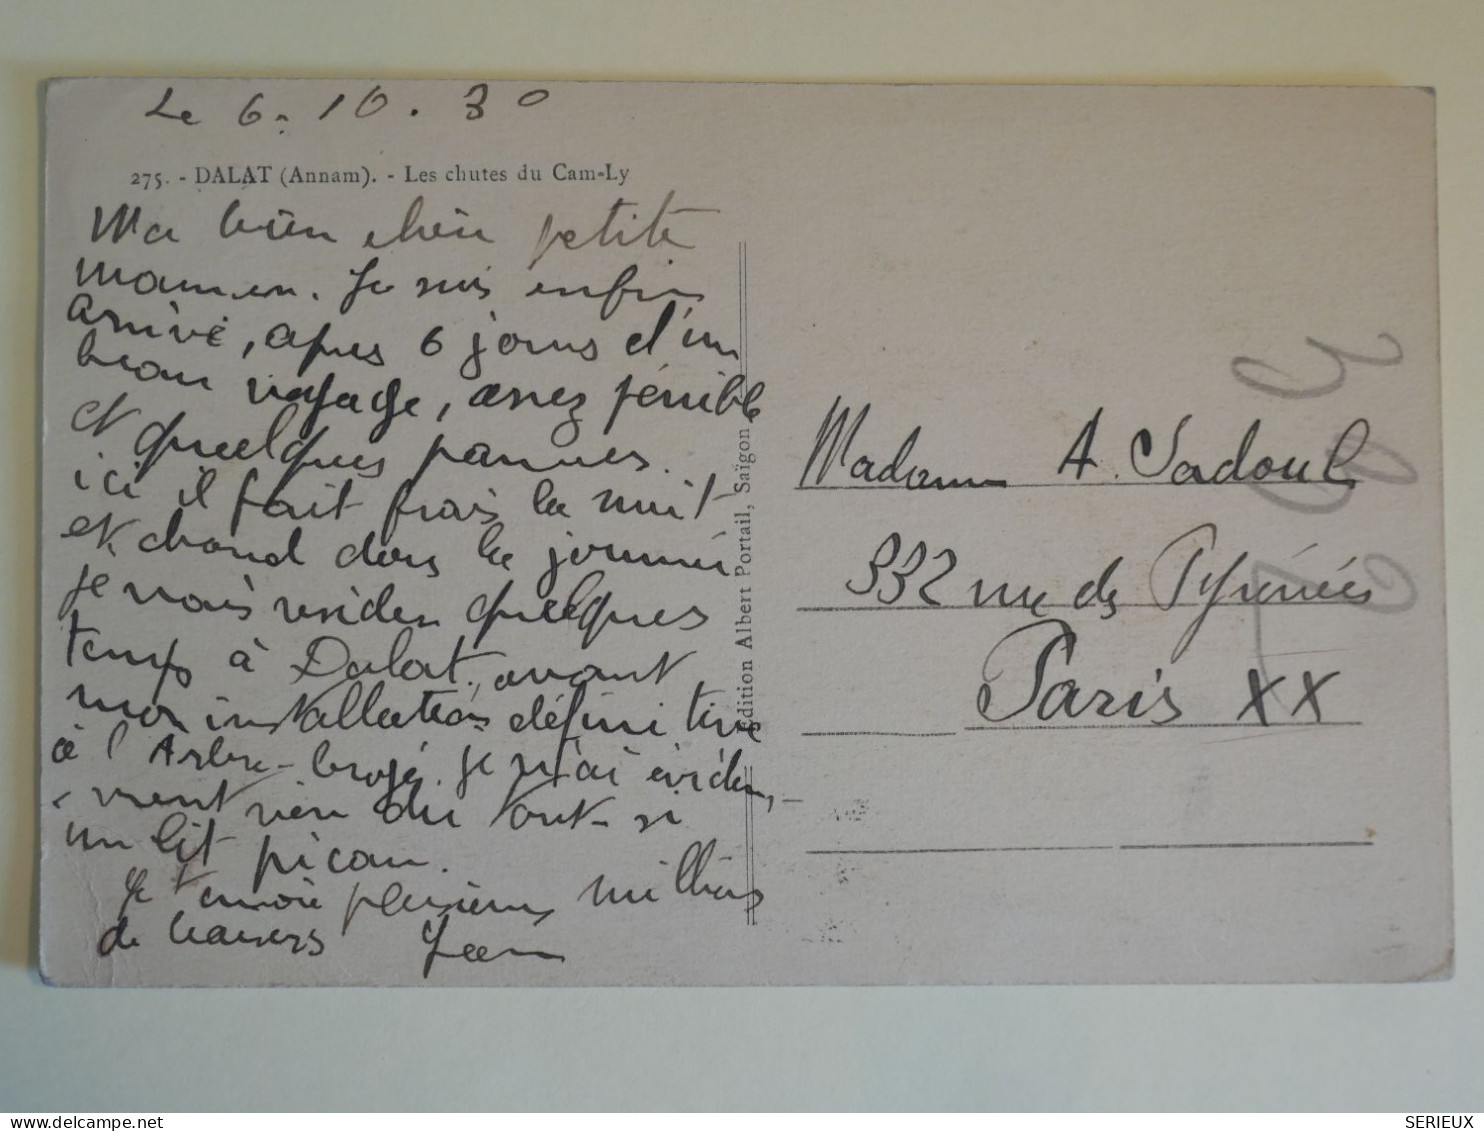 Le 6. 10. 30
275. - DALAT (Annam). - Les chutes du Cam-Ly
Ma bien chère petite
maman. Je suis enfin
arrivé, après 6 jours d'un
beau voyage, assez pénible
et quelques pannes.
ici il fait frais la nuit
et chaud dans la journée
je vais résider quelques
temps à Dalat, avant
mon installation définitive
à l'Arbre-broyé. Je n'ai évidem-
ment rien du tout - si
un lit picau.
Je t'envoie plusieurs milliers
de baisers Jean
Edition Albert Portail, Saïgon
Madame A. Sadoul
332 rue des Pyrénées
Paris XX
SERIEUX